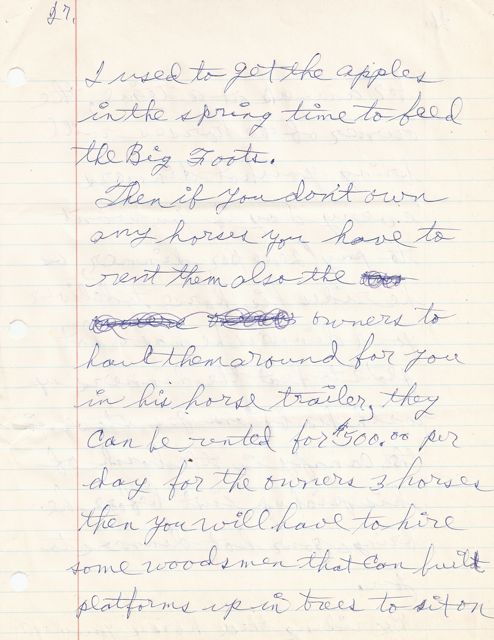 27.
I used to get the apples
in the spring time to feed
the Big Foots.
Then if you don't own
any horses you have to
rent them also the
owners to
haul them around for you
in his horse trailer, they
can be rented for $500.00 per
day for the owners 3 horses
then you will have to hire
some woodsmen that can built
platforms up in trees to sit on